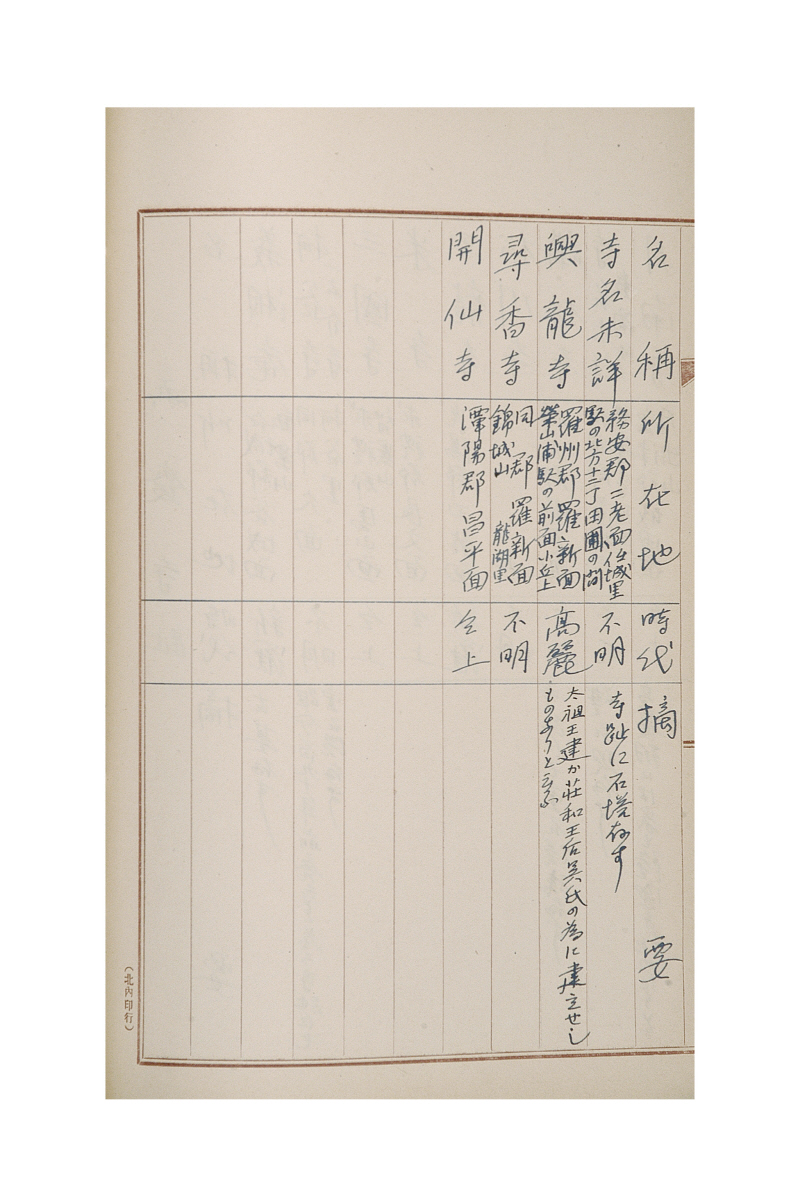 名稱 所在地 時代 摘要
寺名未詳 務安郡二老面仏城里 不明 寺趾に石塔存す
駅の北方十二丁田圃の間
興龍寺 羅州郡羅新面 高麗 太祖王建が莊和王后吳氏の為に建立せし
榮山浦駅の前面小丘上 ものなりと云ふ
尋香寺 同郡羅新面 不明
錦城山龍湖里
開仙寺 潭陽郡昌平面 仝上
(北內印行)